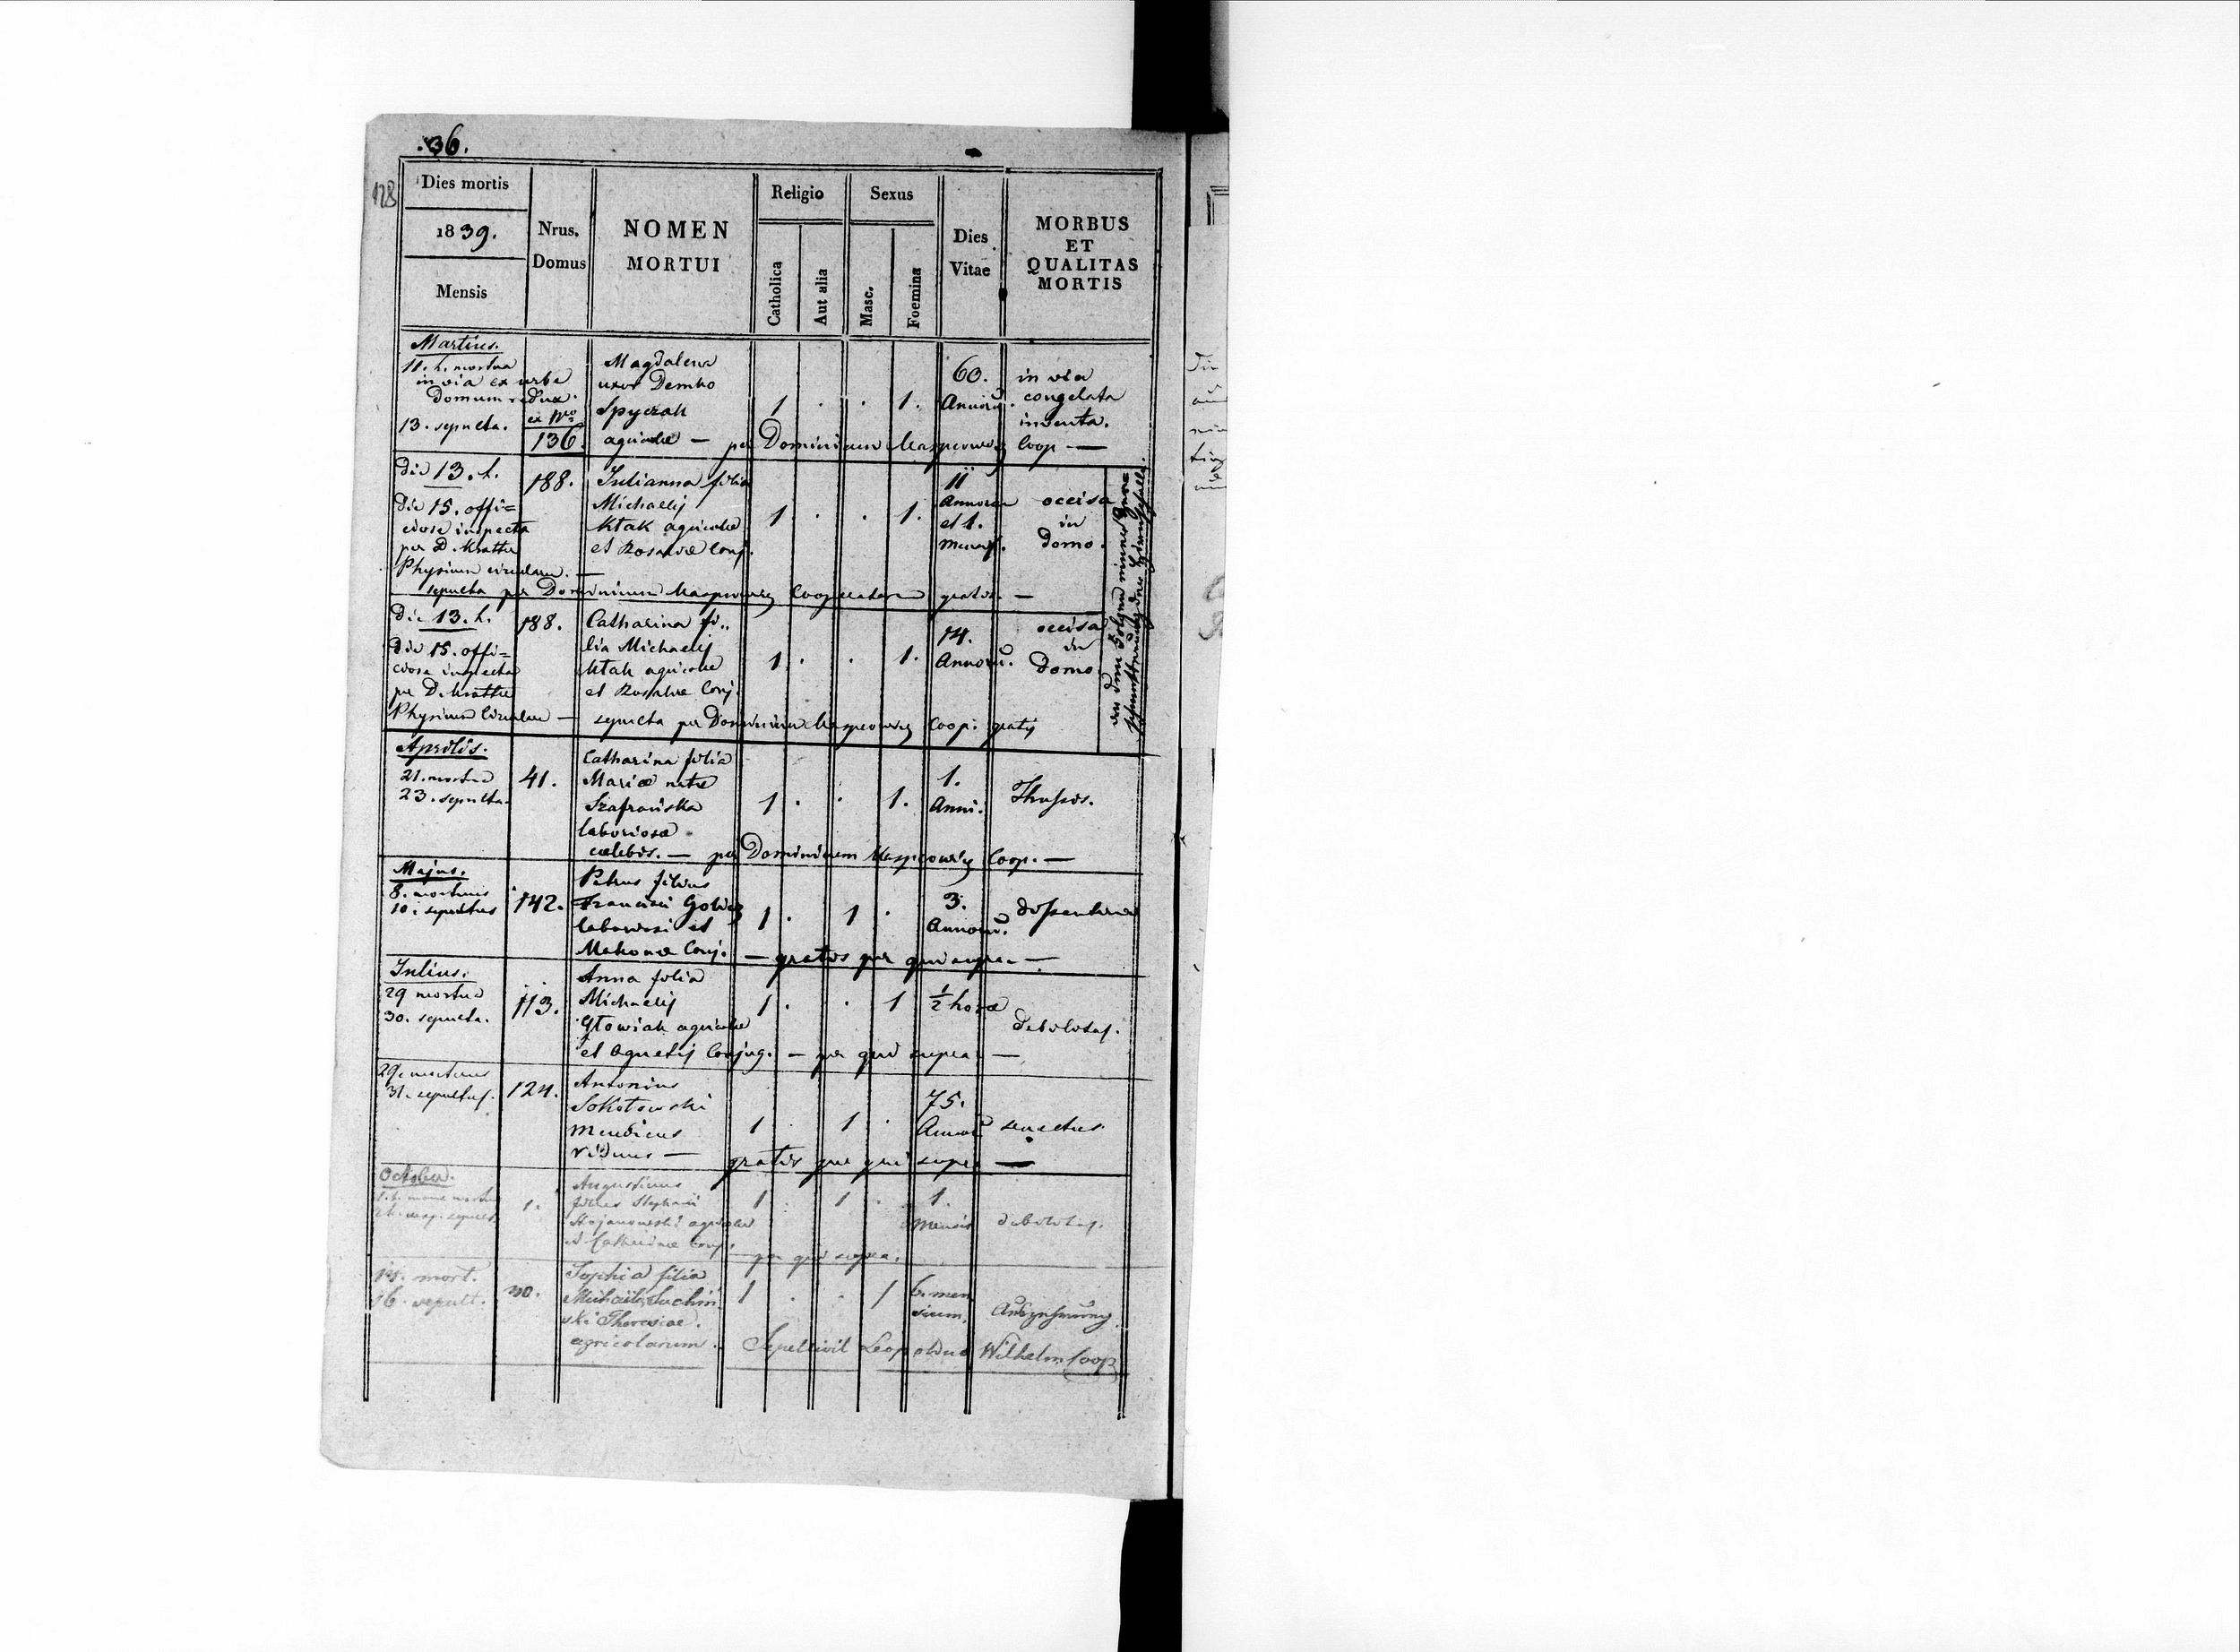 .36.
128
Dies mortis
1839.
Mensis
Nrus.
Domus
NOMEN
MORTUI
Religio
Catholica
Aut alia
Sexus
Masc.
Foemina
Dies
Vitae
MORBUS
ET
QUALITAS
MORTIS
Martius.
11. h. mortua
in via ex urbe
domum redux.
13. sepulta.
ex Nro
136.
Magdalena
uxor Demko
Spyczak
agricolae — per Dominicum Coop —
1 . . 1.
60.
Annorū.
in via
congelata
inventa.
Die 13. h.
die 15. offi=
ciose inspecta
per D. Kratter
Physicum circularem. —
188.
Julianna filia
Michaelis
Ktak agricolae
et Rosaliae Conj.
1 . . 1.
11
Annorum
et 1.
Mensis.
occisa
in
domo.
sepulta per Dominicum Cooperatorem gratis. —
Die 13. h.
die 15. offi=
ciose inspecta
per D. Kratter
Physicum Circularem —
188.
Catharina fi„
lia Michaelis
Ktak agricolae
et Rosaliae Conj.
1 . . 1.
14.
Annorū.
occisa
in
domo
sepulta per Dominicum Coop: gratis
Aprilis.
21. mortua
23. sepulta.
41.
Catharina filia
Mariae natae
Szafrańska
laboriosae
caelebis. — per Dominicum Coop. —
1 . . 1.
1.
Anni.
Thussis.
Majus.
8. mortuus
10. sepultus
142.
Petrus filius
Francisci
laboriosi et
Conj. — gratis per qui supra —
1 . 1 .
3.
Annorū.
dissenteria
Julius.
29 mortua
30. sepulta.
113.
Anna filia
Michaelis
Głowiak agricolae
et Agnetis Conjug. — per qui supra —
1 . . 1
½ horae
debilitas.
29. mortuus
31. sepultus.
124.
Antonius
Sokołowski
mendicus
viduus — gratis per qui supra —
1 . 1 .
75.
Annorū
senectus.
October.
1. h. mane mortuus
1.
Augustinus
filius Stephani
Stojanowski agricolae
et Catharinae Conj. — per qui supra.
1 . 1 .
1.
mensis
debilitas.
mort.
16. sepult.
Sophia filia
Michaelis Suchin
ski Theresiae.
agricolarum.
1 . . 1
6. men
sium.
Auszehrung.
Sepelivit Leopoldus Wilhelm Coop